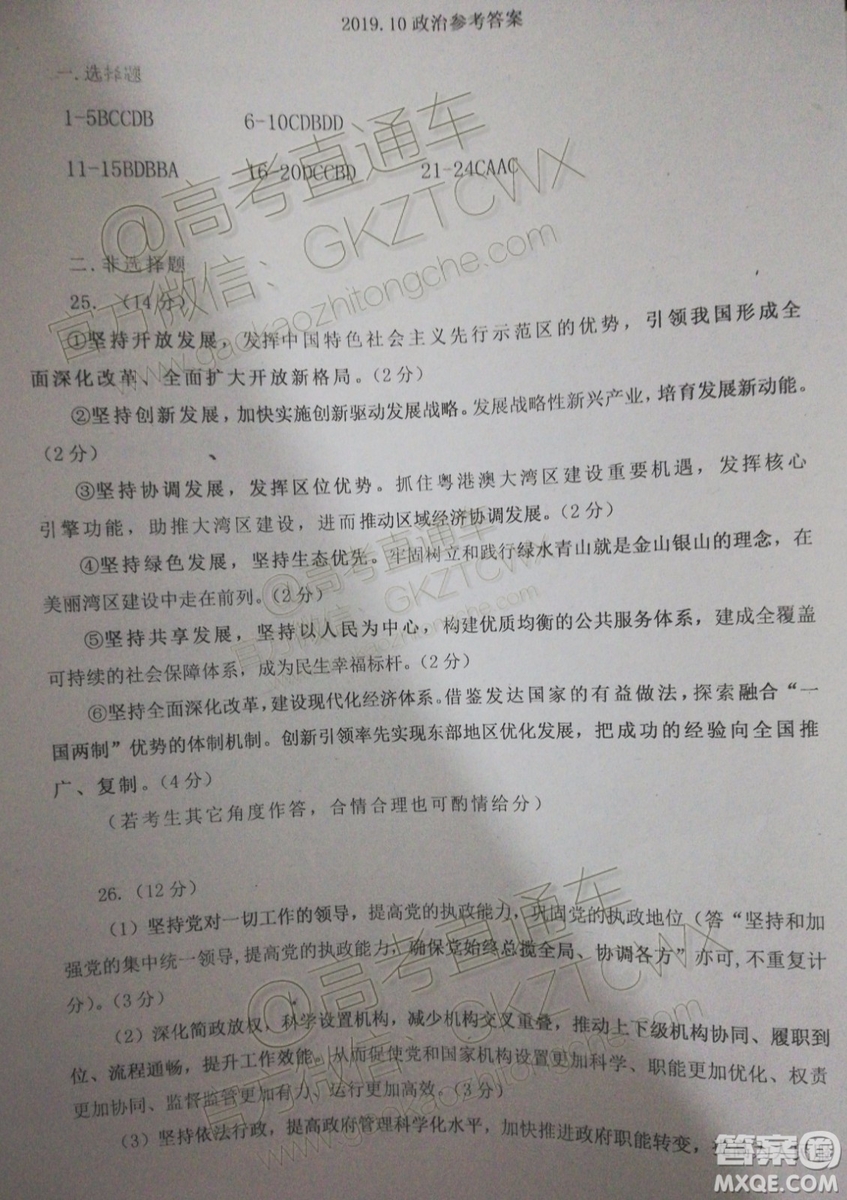 2019.10政治参考答案
一.选择题
1-5BCCDB 6-10CDBDD
11-15BDBBA 16-20DCCBD 21-24CAAC
二.非选择题
25. （14分）
①坚持开放发展，发挥中国特色社会主义先行示范区的优势，引领我国形成全
面深化改革、全面扩大开放新格局。（2分）
②坚持创新发展，加快实施创新驱动发展战略。发展战略性新兴产业，培育发展新动能。
（2分）
③坚持协调发展，发挥区位优势。抓住粤港澳大湾区建设重要机遇，发挥核心
引擎功能，助推大湾区建设，进而推动区域经济协调发展。（2分）
④坚持绿色发展，坚持生态优先。牢固树立和践行绿水青山就是金山银山的理念，在
美丽湾区建设中走在前列。（2分）
⑤坚持共享发展，坚持以人民为中心，构建优质均衡的公共服务体系，建成全覆盖
可持续的社会保障体系，成为民生幸福标杆。（2分）
⑥坚持全面深化改革，建设现代化经济体系。借鉴发达国家的有益做法，探索融合“一
国两制”优势的体制机制。创新引领率先实现东部地区优化发展，把成功的经验向全国推
广、复制。（4分）
（若考生其它角度作答，合情合理也可酌情给分）
26. （12分）
（1）坚持党对一切工作的领导，提高党的执政能力，巩固党的执政地位（答“坚持和加
强党的集中统一领导，提高党的执政能力，确保党始终总揽全局、协调各方”亦可，不重复计
分）。（3分）
（2）深化简政放权，科学设置机构，减少机构交叉重叠，推动上下级机构协同、履职到
位、流程通畅，提升工作效能。从而促使党和国家机构设置更加科学、职能更加优化、权责
更加协同、监督监管更加有力、运行更加高效。（3分）
（3）坚持依法行政，提高政府管理科学化水平，加快推进政府职能转变，
@高考直通车
官方微信：GKZTCWX
www.gaokaozhitongche.com
@高考直通车
官方微信：GKZTCWX
@高考直通车
官方微信：GKZTCWX
www.gaokaozhitongche.com
答案圈
MXQE.COM